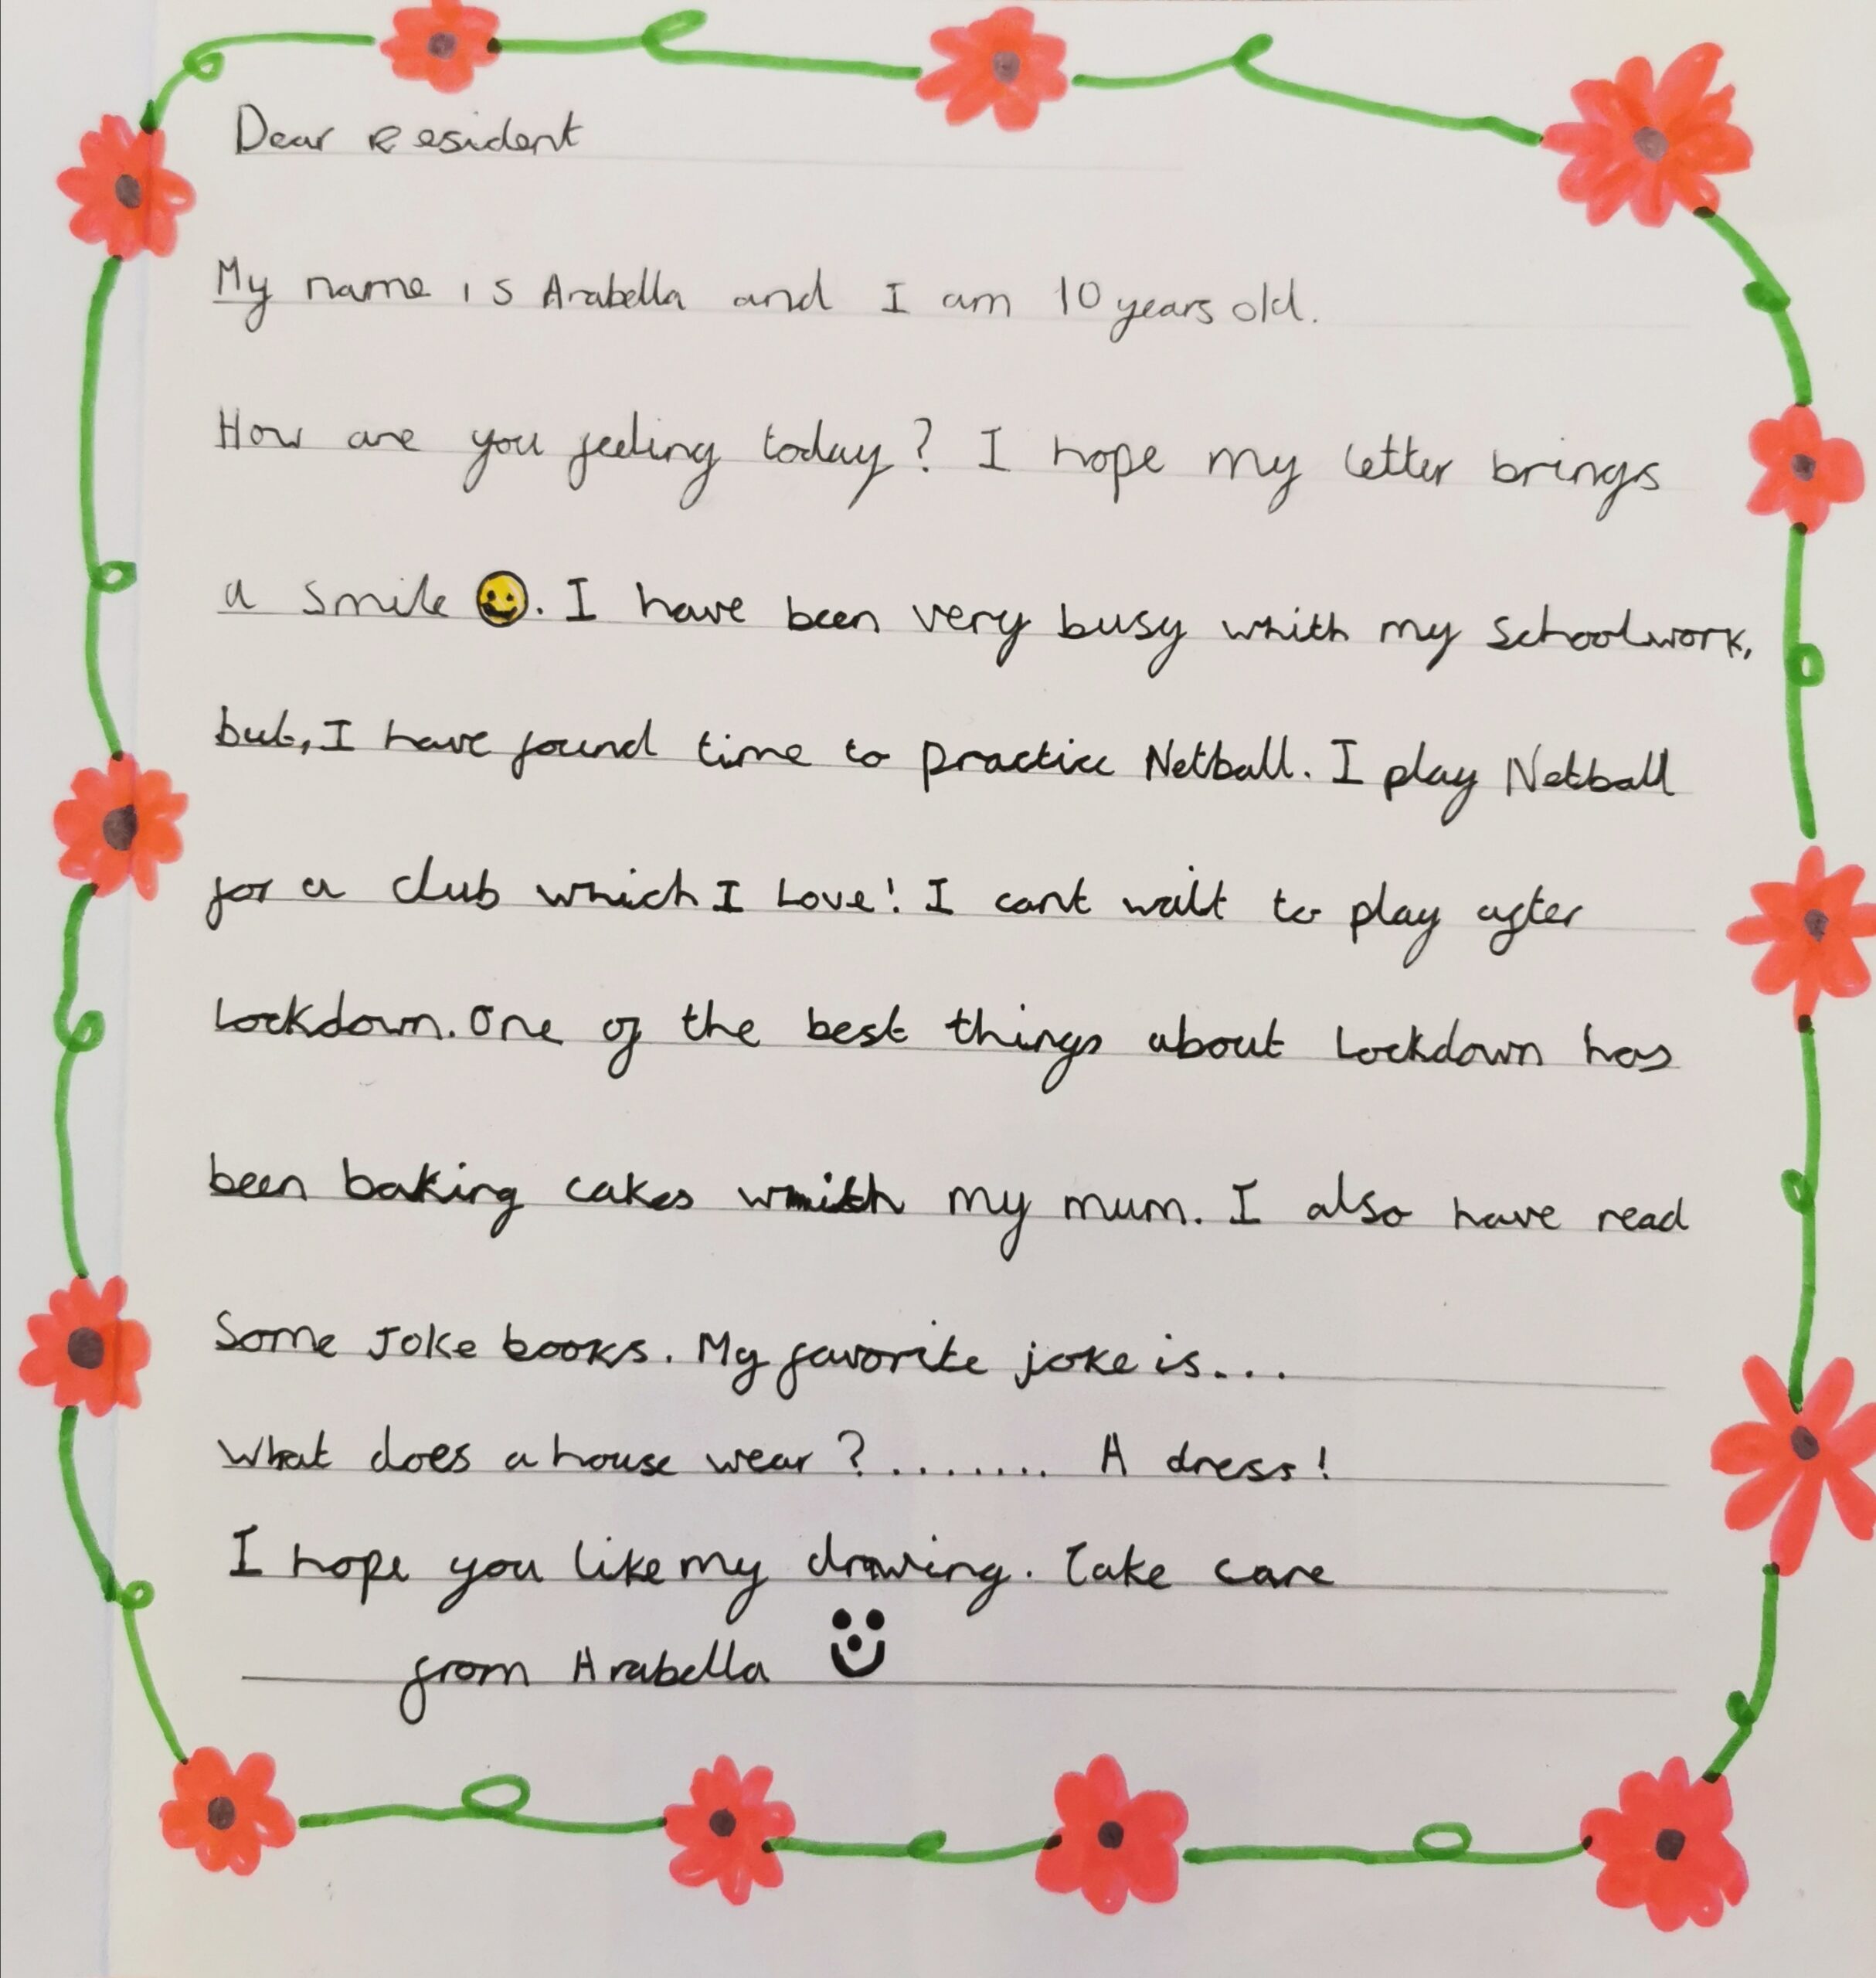 Dear Resident
My name is Arabella and I am 10 years old.
How are you feeling today? I hope my letter brings
a smile 🙂. I have been very busy whith my schoolwork,
but, I have found time to practice Netball. I play Netball
for a club which I Love! I cant wait to play after
Lockdown. One of the best things about Lockdown has
been baking cakes whith my mum. I also have read
Some Joke books. My favorite joke is...
What does a house wear?........ A dress!
I hope you like my drawing. Take care
from Arabella